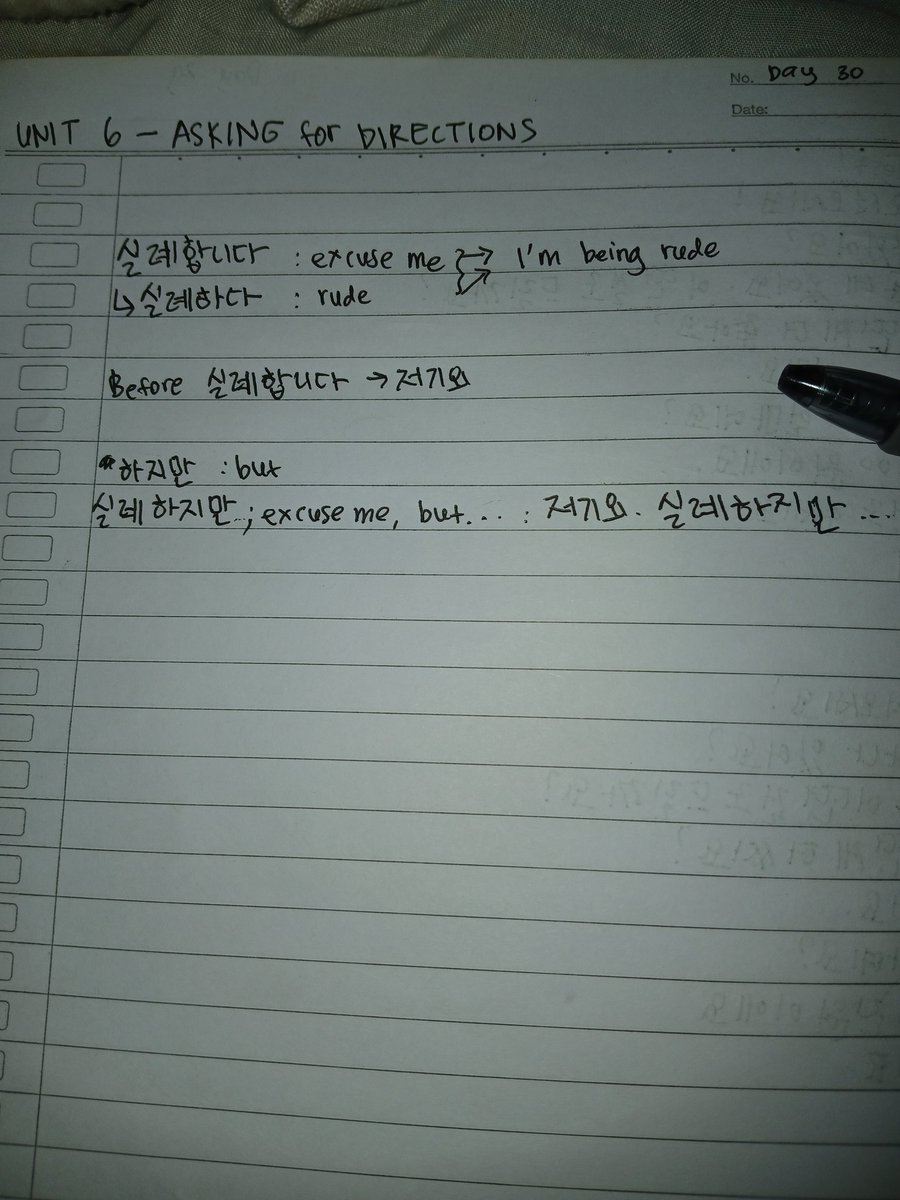 No. Day 30
Date:
UNIT 6 - ASKING for DIRECTIONS
실례합니다 : excuse me → I'm being rude
↳ 실례하다 : rude
Before 실례합니다 → 저기요
*하지만 : but
실례하지만...; excuse me, but... : 저기요. 실례하지만 ...